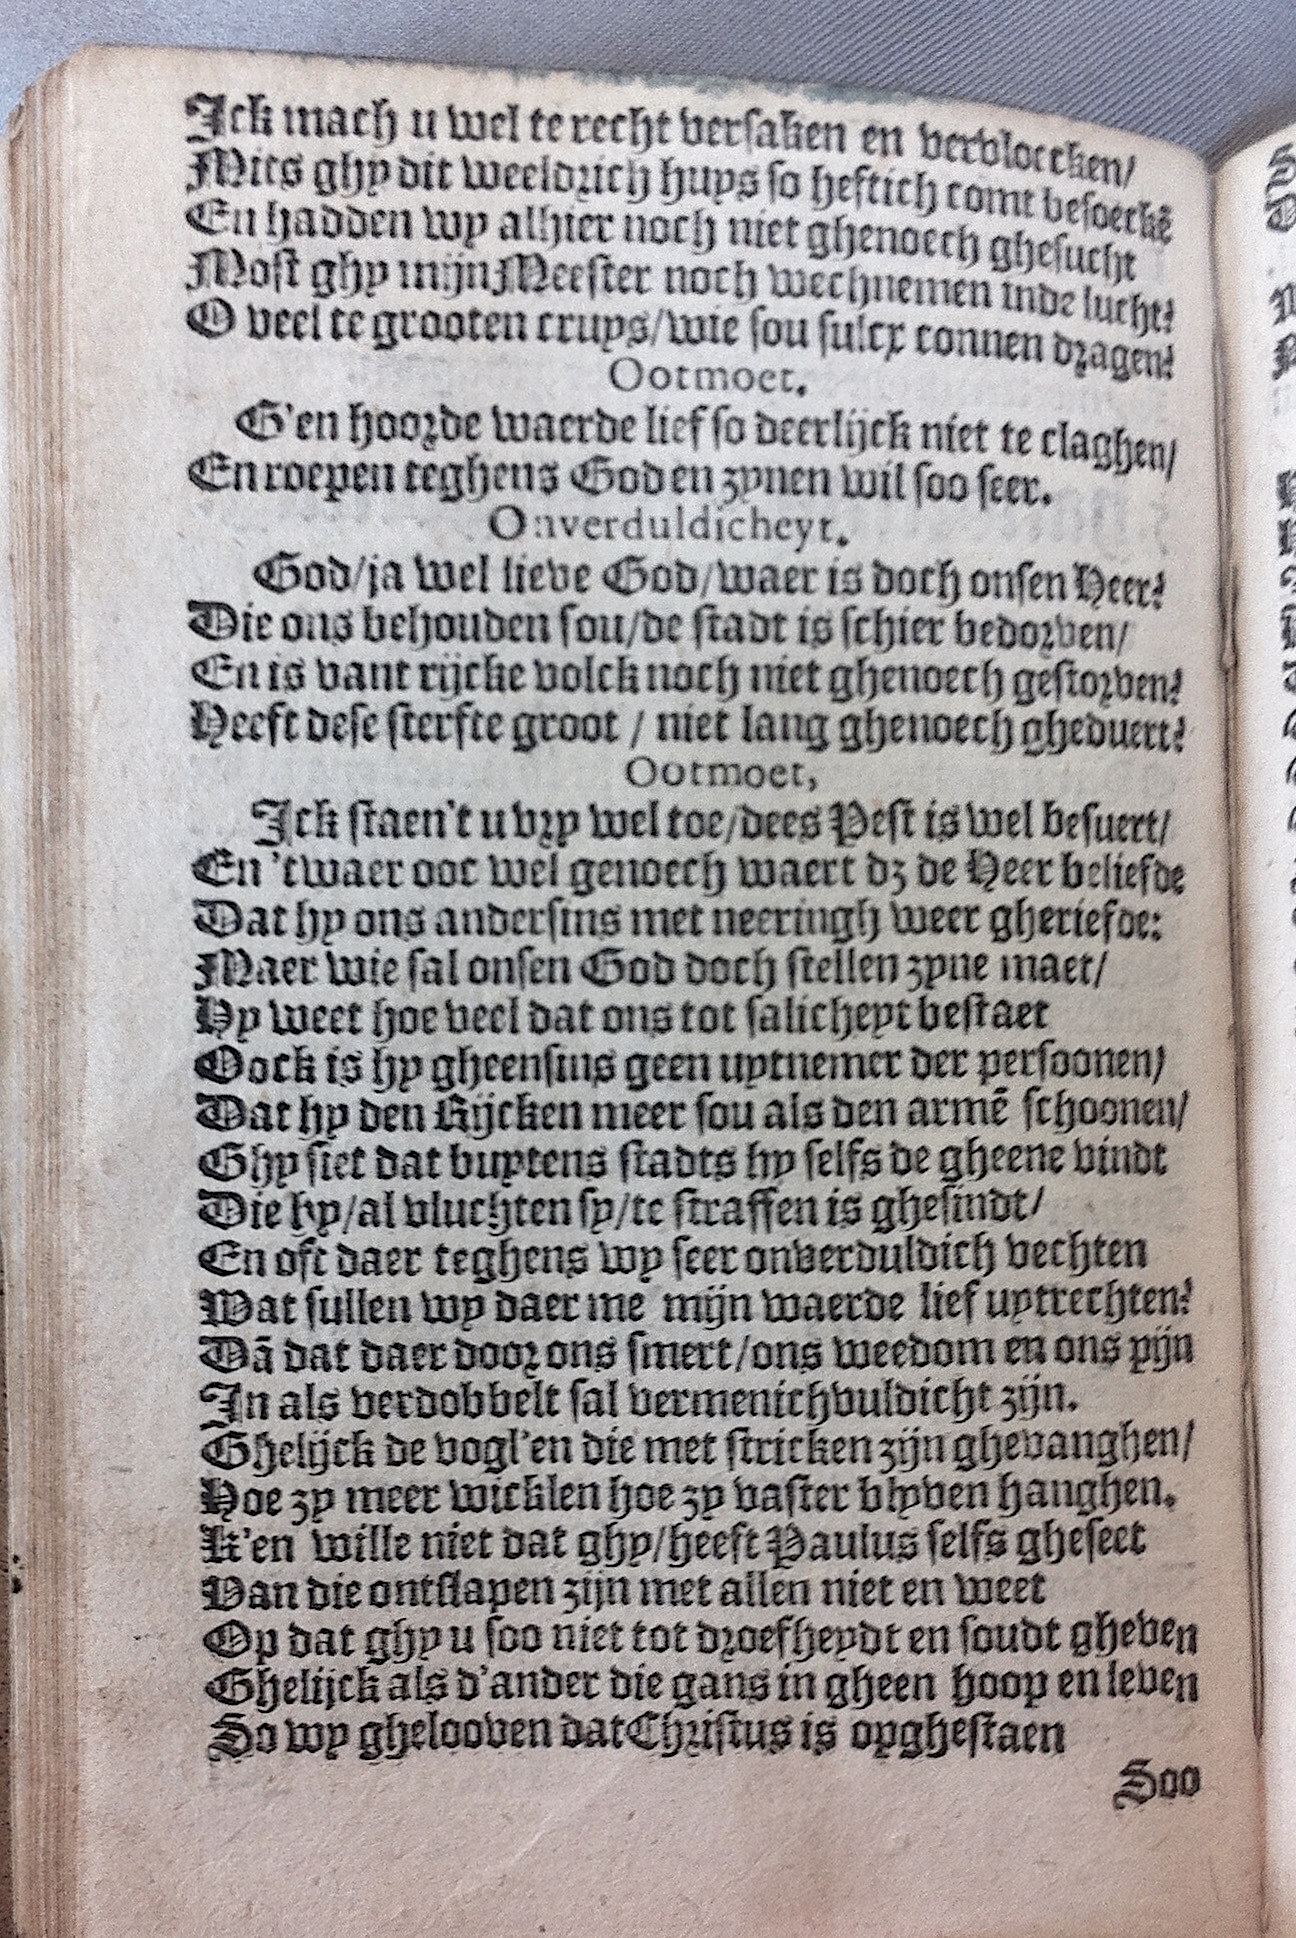 Ick mach u wel te recht versaken en vervloecken/
Mits ghy dit weeldrich huys so heftich comt besoeckẽ
En hadden wy alhier noch niet ghenoech ghesucht
Most ghy mijn Meester noch wechnemen inde lucht?
O veel te grooten cruys/wie sou sulcx connen dragen?
Ootmoet.
G'en hoorde waerde lief so deerlijck niet te claghen/
En roepen teghens God en zynen wil soo seer.
Onverduldicheyt.
God/ja wel lieve God/waer is doch onsen Heer?
Die ons behouden sou/de stadt is schier bedorven/
En is vant rijcke volck noch niet ghenoech gestorven?
Heeft dese sterfte groot / niet lang ghenoech gheduert?
Ootmoet,
Ick staen't u vry wel toe/dees Pest is wel besuert/
En 'twaer ooc wel genoech waert dz de Heer beliefde
Dat hy ons andersins met neeringh weer gheriefde:
Maer wie sal onsen God doch stellen zyne maet/
Hy weet hoe veel dat ons tot salicheyt bestaet
Oock is hy gheensins geen uytnemer der persoonen/
Dat hy den Rijcken meer sou als den armẽ schoonen/
Ghy siet dat buytens stadts hy selfs de gheene vindt
Die hy/al vluchten sy/te straffen is ghesindt/
En oft daer teghens wy seer onverduldich vechten
Wat sullen wy daer me mijn waerde lief uytrechten?
Dã dat daer door ons smert/ons weedom en ons pijn
In als verdobbelt sal vermenichvuldicht zijn.
Ghelijck de vogl'en die met stricken zijn ghevanghen/
Hoe zy meer wicklen hoe zy vaster blyven hanghen.
K'en wille niet dat ghy/heeft Paulus selfs gheseet
Van die ontslapen zijn met allen niet en weet
Op dat ghy u soo niet tot droefheydt en soudt gheven
Ghelijck als d'ander die gans in gheen hoop en leven
So wy ghelooven dat Christus is opghestaen
Soo